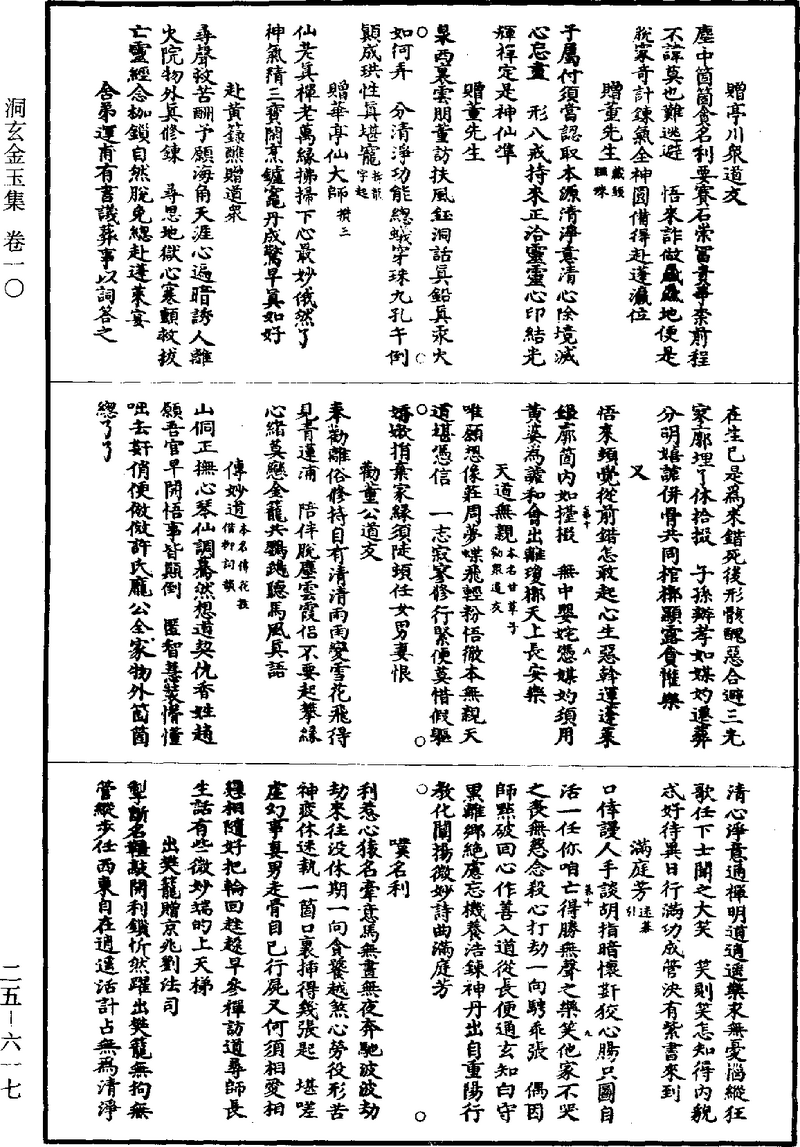 洞玄金玉集 卷一〇
二五—六一七
贈亭川衆道友
塵中箇箇貪名利要賽石崇冨貴華柰前程
不諱莫也難逃避 悟來詐做䖃䖃地便是
脱家奇計鍊氣全神圓備得赴蓬瀛位
贈董先生
子屬付須當認取本源清淨意清心除境滅
心忘晝 形八戒持來正洽靈靈心印結光
輝禪定是神仙準
贈董先生
杲西裏雲朋董訪扶風鈺洞話真鉛真汞火
如何弄 分清淨功能總蛾穿珠九孔午倒
顛成珙性真堪寵
贈華亭仙大師
仙老真禪老萬緣拂掃下心最妙俄然了
神氣精三寶開烹鑪竈丹成驚早真如好
赴黃籙醮贈道衆
尋聲救苦酬予願海角天涯心遍暗誘人離
火院物外真修鍊 尋思地獄心寒顫救拔
亡靈經念枷鎖自然脱免總赴蓬萊宴
舍弟運甫有書議葬事以詞答之
在生已是爲來錯死後形骸醜惡合避三光
家廓埋了休拾掇 子孫辦孝如媒妁遷葬
分明嬉謔併骨共同棺槨顯露負慚樂
又
悟來頻覺從前錯怎敢起心生惡斡運蓬萊
鋃廓箇内如撞掇 無中嬰姹憑媒妁須用
黃婆爲謔和會出離瓊槨天上長安樂
天道無親 本名甘草子 勸衆道友
唯願想像莊周夢蝶飛輕粉悟徹本無親天
道堪憑信 一志寂寥修行緊便莫惜假軀
嬌嫩指棄家緣須陡頓任女男妻恨
勸董公道友
奉勸離俗修持自有清清雨雨變雪花飛得
見青蓮浦 陪伴脱塵雲霞侶不要起攀緣
心緒莫戀金籠共鸚鵡聽馬風真語
傳妙道 本名傳花枝 借柳詞韻
山侗正撫心琴仙調驀然想道契仇香姓趙
願吾官早開悟事皆顛倒 匿智慧裝懵懂
咄去奸俏便傚傚許氏龐公全家物外箇箇
總了了
清心淨意通禪明道逍遥樂永無憂惱縱狂
歌任下士聞之大笑 笑則笑怎知得内貌
忒好待異日行滿功成管決有紫書來到
滿庭芳
口倖謾人手談胡指暗懷奸狡心腸只圖自
活一任你咱亡得勝無聲之樂笑他家不哭
之喪無慈念殺心打劫一向騁乖張 偶因
師點破回心作善入道從長便通玄知白守
黑離鄉絶慮忘機養浩鍊神丹出自重陽行
教化闡揚微妙詩曲滿庭芳
嘆名利
利惹心猿名牽意馬無晝無夜奔馳波波劫
劫來往没休期一向貪饕越煞心勞役形苦
神疲休迷執一箇口裏插得幾張匙 堪嗟
虛幻事妻男走骨自已行屍又何須相愛相
戀相隨好把輪回趓趓早參禪訪道尋師長
生話有些微妙端的上天梯
出樊籠贈京兆劉法司
掣斷名韁敲開利鎖忻然躍出樊籠無拘無
管縱步任西東自在逍遥活計占無爲清淨